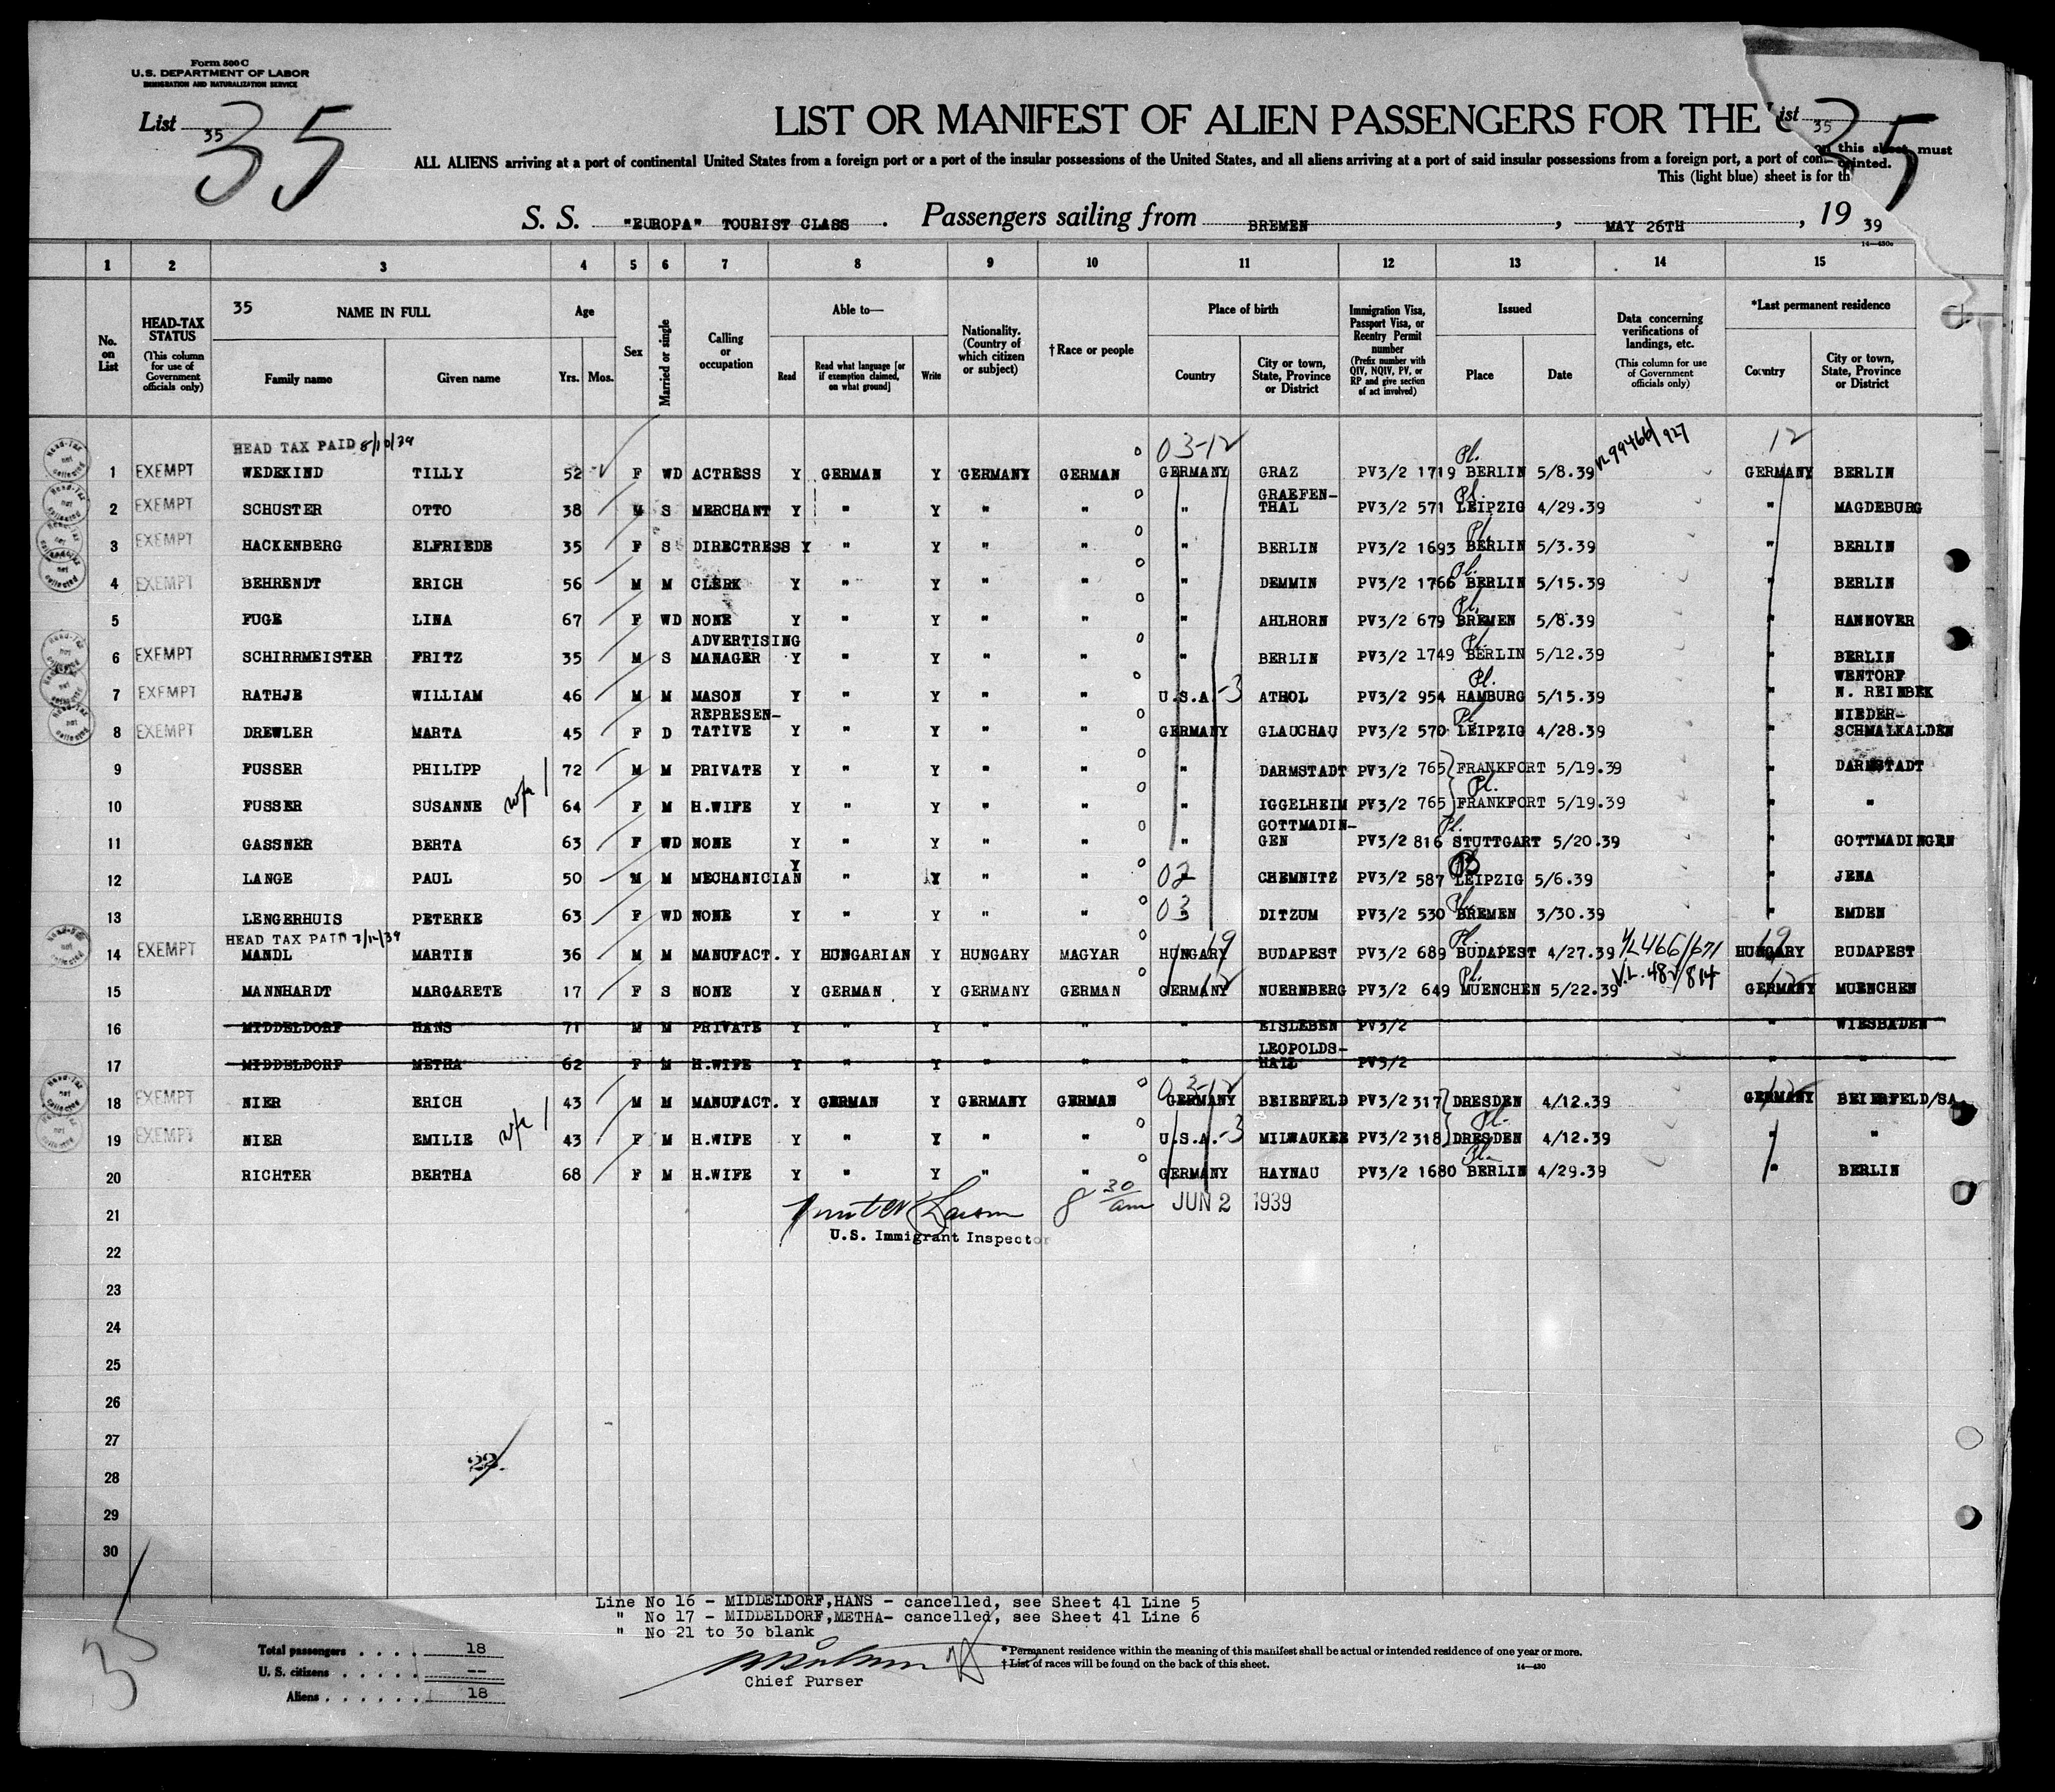 Form 500 C
U.S. DEPARTMENT OF LABOR
IMMIGRATION AND NATURALIZATION SERVICE
List 35 35
LIST OR MANIFEST OF ALIEN PASSENGERS FOR THE
ist 35 35
ALL ALIENS arriving at a port of continental United States from a foreign port or a port of the insular possessions of the United States, and all aliens arriving at a port of said insular possessions from a foreign port, a port of con
this sheet must
This (light blue) sheet is for th
S. S. "EUROPA" TOURIST CLASS . Passengers sailing from BREMEN , MAY 26TH , 19 39
1 2 3 4 5 6 7 8 9 10 11 12 13 14 15
No. on List
HEAD-TAX STATUS (This column for use of Government officials only)
35 NAME IN FULL
Family name Given name
Age Yrs. Mos.
Sex
Married or single
Calling or occupation
Able to— Read Read what language [or if exemption claimed, on what ground] Write
Nationality. (Country of which citizen or subject)
† Race or people
Place of birth Country City or town, State, Province or District
Immigration Visa, Passport Visa, or Reentry Permit number (Prefix number with QIV, NQIV, PV, or RP and give section of act involved)
Issued Place Date
Data concerning verifications of landings, etc. (This column for use of Government officials only)
*Last permanent residence Country City or town, State, Province or District
HEAD TAX PAID 8/10/39 03-12 12
1 EXEMPT WEDEKIND TILLY 52 F WD ACTRESS Y GERMAN Y GERMANY GERMAN GERMANY GRAZ PV3/2 1719 BERLIN 5/8.39 GERMANY BERLIN
2 EXEMPT SCHUSTER OTTO 38 M S MERCHANT Y " Y " " " GRAEFEN-THAL PV3/2 571 LEIPZIG 4/29.39 " MAGDEBURG
3 EXEMPT HACKENBERG ELFRIEDE 35 F S DIRECTRESS Y " Y " " " BERLIN PV3/2 1693 BERLIN 5/3.39 " BERLIN
4 EXEMPT BEHRENDT ERICH 56 M M CLERK Y " Y " " " DEMMIN PV3/2 1766 BERLIN 5/15.39 " BERLIN
5 FUGE LINA 67 F WD NONE Y " Y " " " AHLHORN PV3/2 679 BREMEN 5/8.39 " HANNOVER
6 EXEMPT SCHIRRMEISTER FRITZ 35 M S ADVERTISING MANAGER Y " Y " " " BERLIN PV3/2 1749 BERLIN 5/12.39 " BERLIN
7 EXEMPT RATHJE WILLIAM 46 M M MASON Y " Y " " U.S.A.-3 ATHOL PV3/2 954 HAMBURG 5/15.39 " WENTORF N. REINBEK
8 EXEMPT DREWLER MARTA 45 F D REPRESEN-TATIVE Y " Y " " GERMANY GLAUCHAU PV3/2 570 LEIPZIG 4/28.39 " NIEDER-SCHMALKALDEN
9 FUSSER PHILIPP 72 M M PRIVATE Y " Y " " " DARMSTADT PV3/2 765 FRANKFORT 5/19.39 " DARMSTADT
10 FUSSER SUSANNE 64 F M H.WIFE Y " Y " " " IGGELHEIM PV3/2 765 FRANKFORT 5/19.39 " "
11 GASSNER BERTA 63 F WD NONE Y " Y " " " GOTTMADIN-GEN PV3/2 816 STUTTGART 5/20.39 " GOTTMADINGEN
12 LANGE PAUL 50 M M MECHANICIAN Y " Y " " 02 CHEMNITZ PV3/2 587 LEIPZIG 5/6.39 " JENA
13 LENGERHUIS PETERKE 63 F WD NONE Y " Y " " 03 DITZUM PV3/2 530 BREMEN 3/30.39 " EMDEN
HEAD TAX PAID
14 EXEMPT MANDL MARTIN 36 M M MANUFACT. Y HUNGARIAN Y HUNGARY MAGYAR HUNGARY 19 BUDAPEST PV3/2 689 BUDAPEST 4/27.39 HUNGARY BUDAPEST
15 MANNHARDT MARGARETE 17 F S NONE Y GERMAN Y GERMANY GERMAN GERMANY 12 NUERNBERG PV3/2 649 MUENCHEN 5/22.39 GERMANY 12 MUENCHEN
16 MIDDELDORF HANS 71 M M PRIVATE Y " Y " " " EISLEBEN PV3/2 " WIESBADEN
17 MIDDELDORF METHA 62 F M H.WIFE Y " Y " " " LEOPOLDS-HALL PV3/2 " "
18 EXEMPT NIER ERICH 43 M M MANUFACT. Y GERMAN Y GERMANY GERMAN GERMANY BEIERFELD PV3/2 317 DRESDEN 4/12.39 GERMANY 12 BEIERFELD/SA.
19 EXEMPT NIER EMILIE 43 F M H.WIFE Y " Y " " U.S.A.-3 MILWAUKEE PV3/2 318 DRESDEN 4/12.39 " "
20 RICHTER BERTHA 68 F M H.WIFE Y " Y " " GERMANY HAYNAU PV3/2 1680 BERLIN 4/29.39 " BERLIN
21 8 30 am JUN 2 1939
22 U.S. Immigrant Inspector
23
24
25
26
27
28 22
29
30
Line No 16 - MIDDELDORF,HANS - cancelled, see Sheet 41 Line 5
" No 17 - MIDDELDORF,METHA- cancelled, see Sheet 41 Line 6
" No 21 to 30 blank
Total passengers . . . . 18
U. S. citizens . . . . . --
Aliens . . . . . . 18
35
Chief Purser
* Permanent residence within the meaning of this manifest shall be actual or intended residence of one year or more.
† List of races will be found on the back of this sheet.
14—430